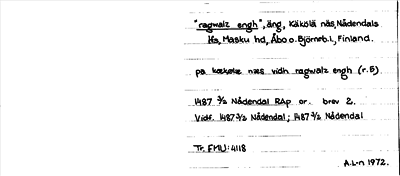 "ragwalz engh", äng, Käkölä näs, Nådendals
lfs, Masku hd, Åbo o. Björneb. l., Finland.
på kækøle næs vidh ragwalz engh (r. 5)
1487 3/2 Nådendal RAp or. brev 2.
Vidf. 1487 3/2 Nådendal; 1487 3/2 Nådendal
Tr. FMU: 4118
A.L-n 1972.